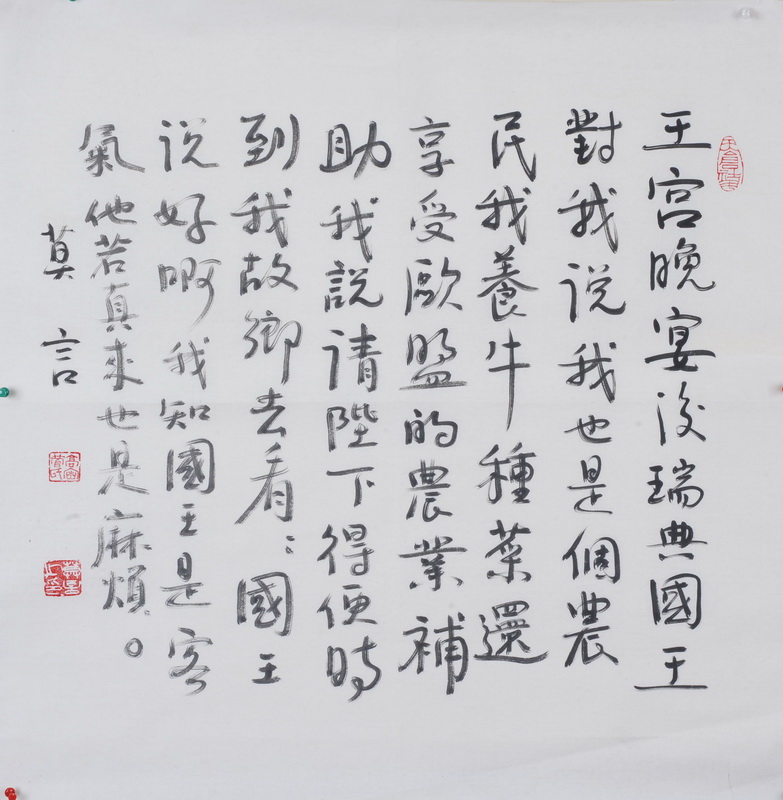 王宫晚宴後瑞典國王
對我说我也是個農
民我養牛種菜還
享受歐盟的農業補
助我説请陛下得便時
到我故鄉去看:國王
说好啊我知國王是客
氣他若真來也是麻煩。
莫言